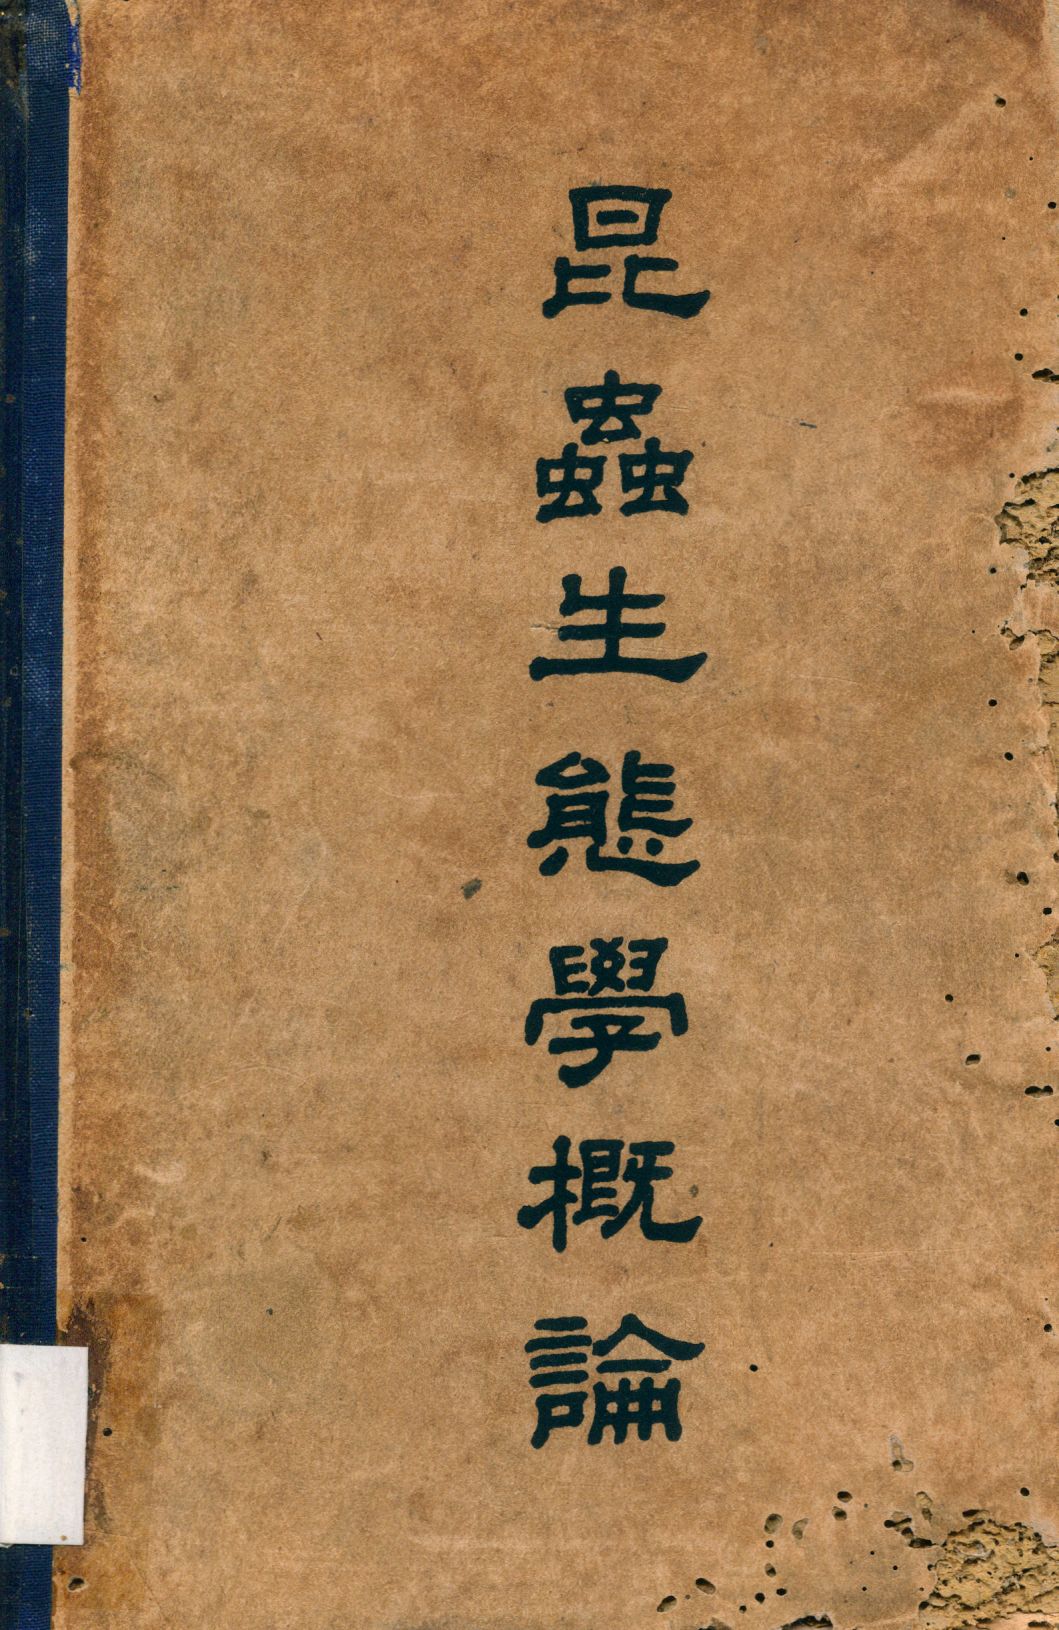 昆蟲生態學概論